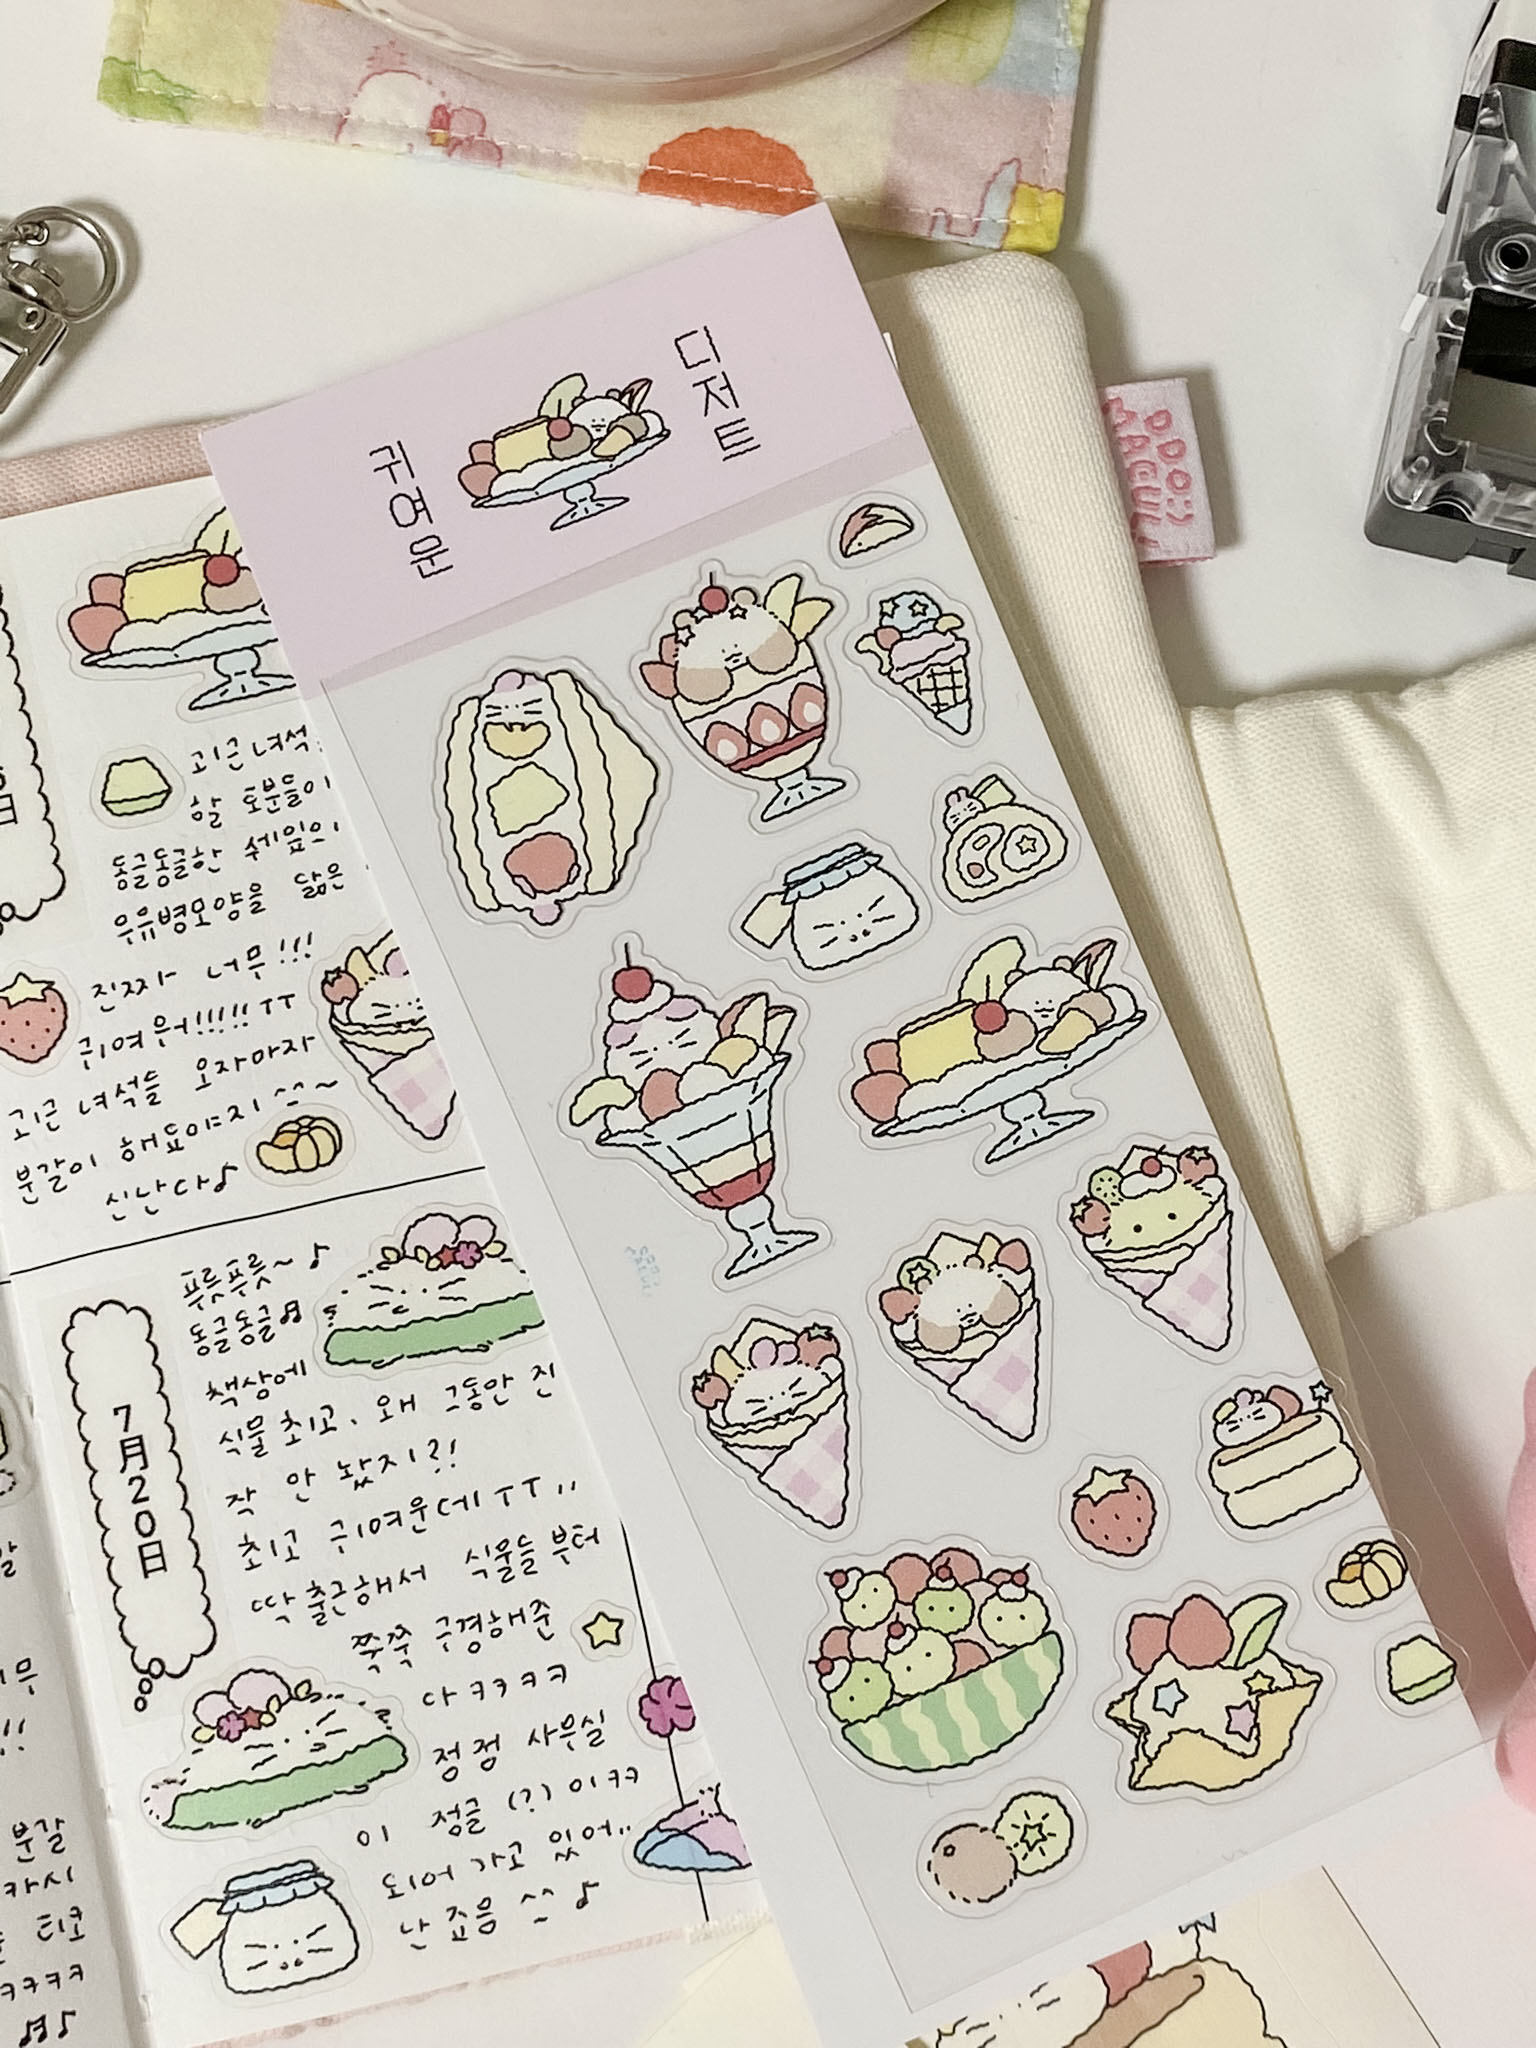 귀여운
디저트
DDO:)
ARGULI
긔근녀석
할 호분들이
동글동글한
우유병모양을 닮은
진짜 너무!!!
긔여워!!!!!ㅜㅜ
긔근 녀석들 오자마자
분갈이 해죠야지 ^_^~
신난다♪
7月20日
푸릇푸릇~♪
동글동글♬
책상에
식물 최고. 왜 그동안 진
작 안 놨지?!
최고 긔여운데ㅜㅜ,,
딱 출근해서 식물들 부터
쭉쭉 구경해준
다ㅋㅋㅋㅋ
점점 사무실
이 정글(?)이ㅋㅋ
되어 가고 있어..
난 죠음 ^_^ ♪
분갈
티코
ㅋㅋㅋㅋ